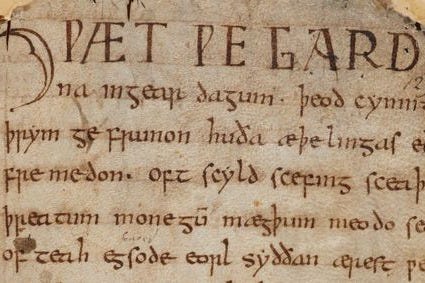 HǷÆT ǷE GARD
na ingear dagum. þeod cynin
þrym ge frunon huða æþelingas el
fre medon. oft scyld scefing sceaþ
þreatum monegū mægþum meodo se
of teah egsode eorl syððan ærest ƿe